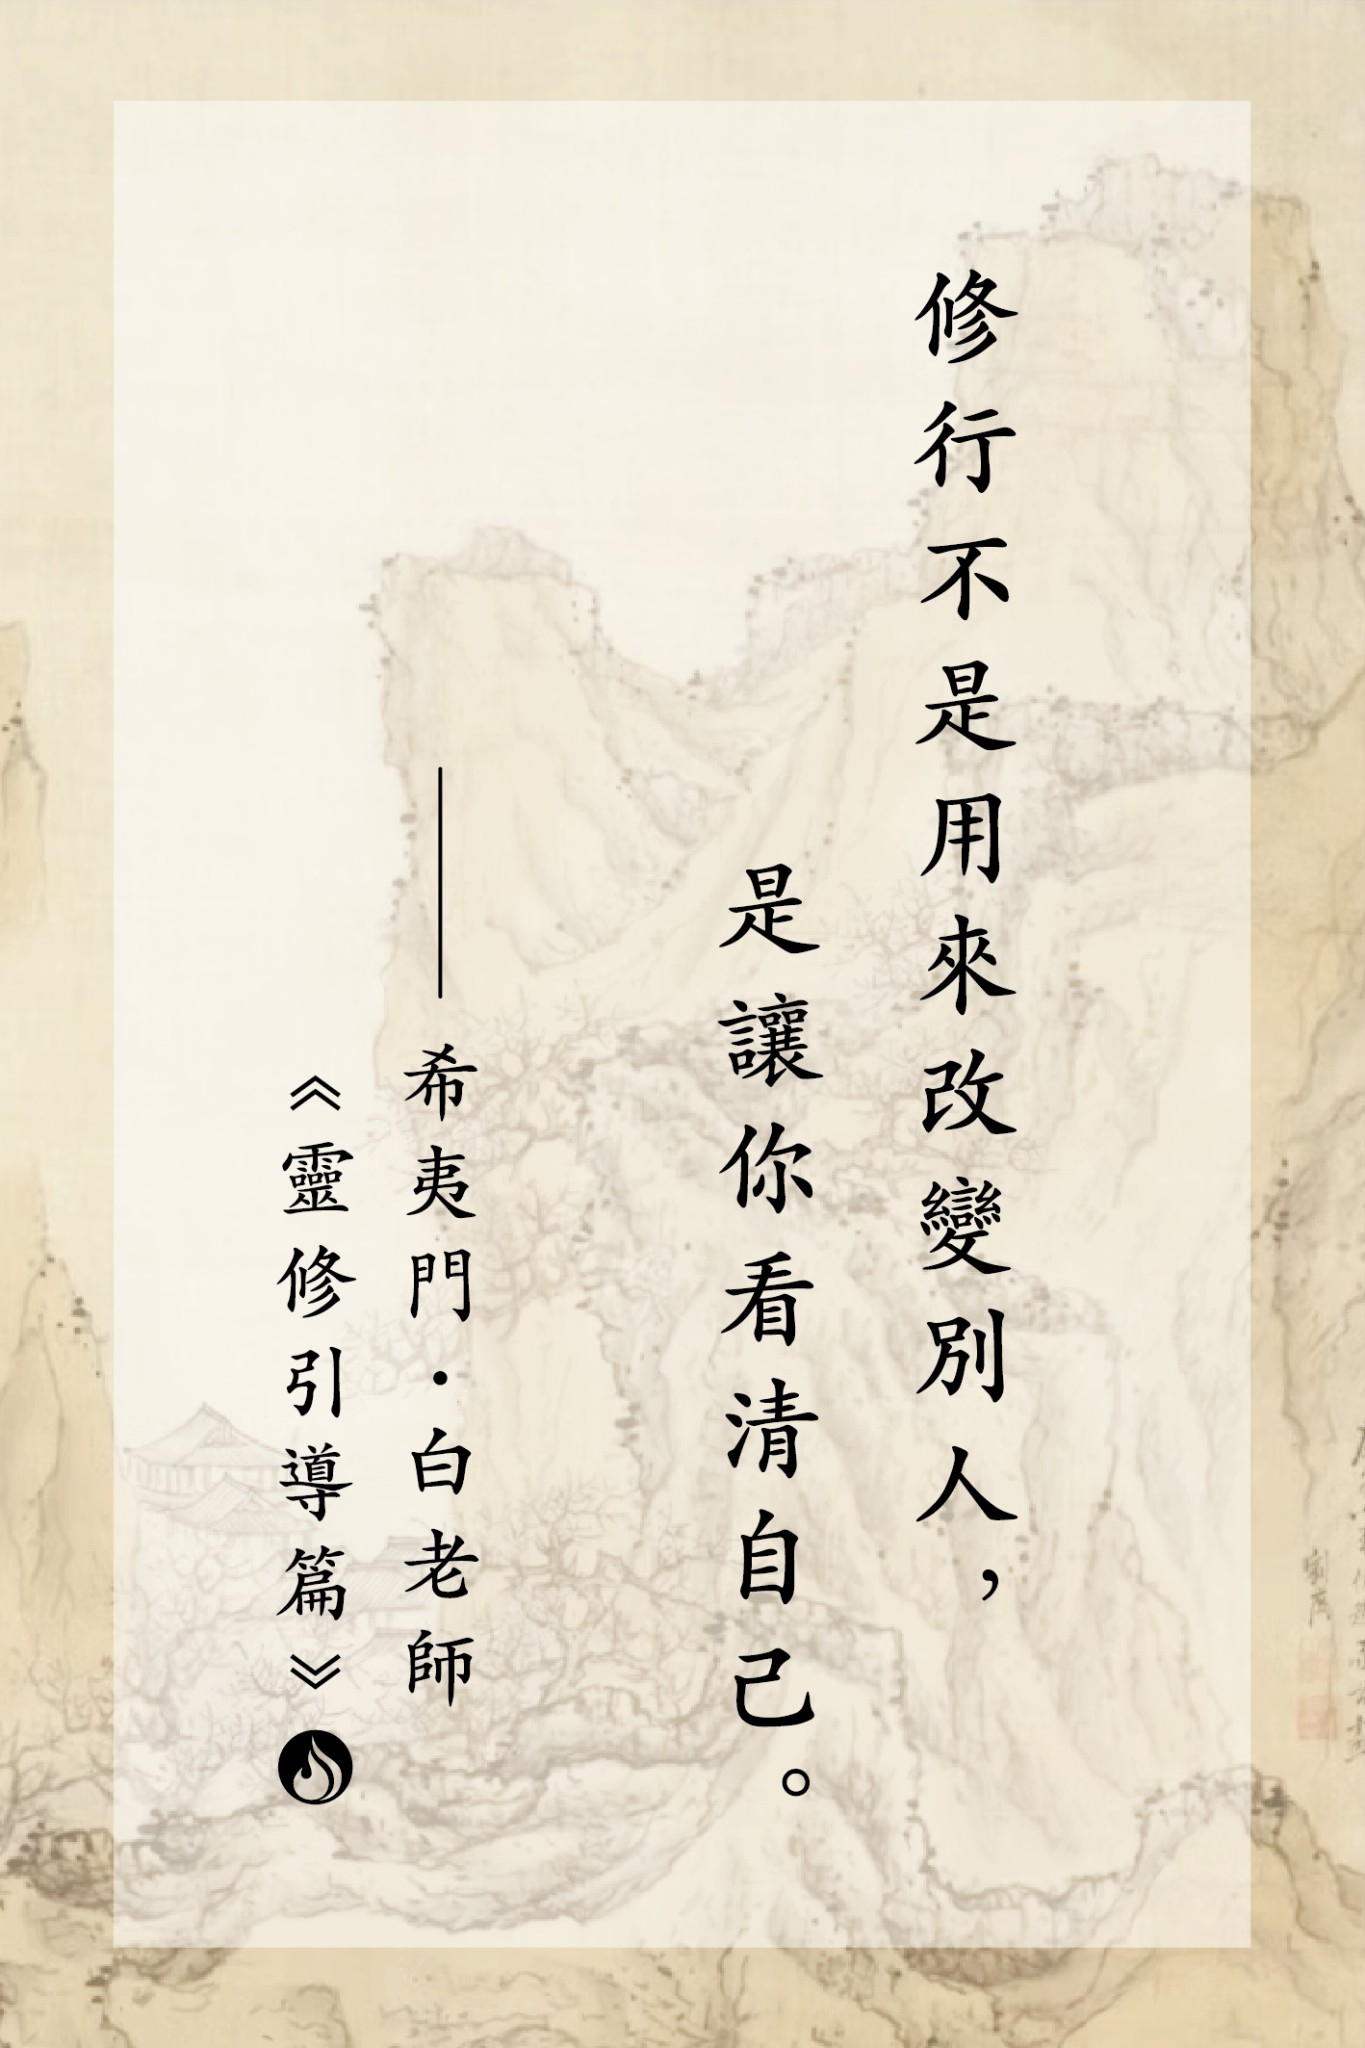 修行不是用來改變別人，
是讓你看清自己。
——希夷門·白老師
《靈修引導篇》